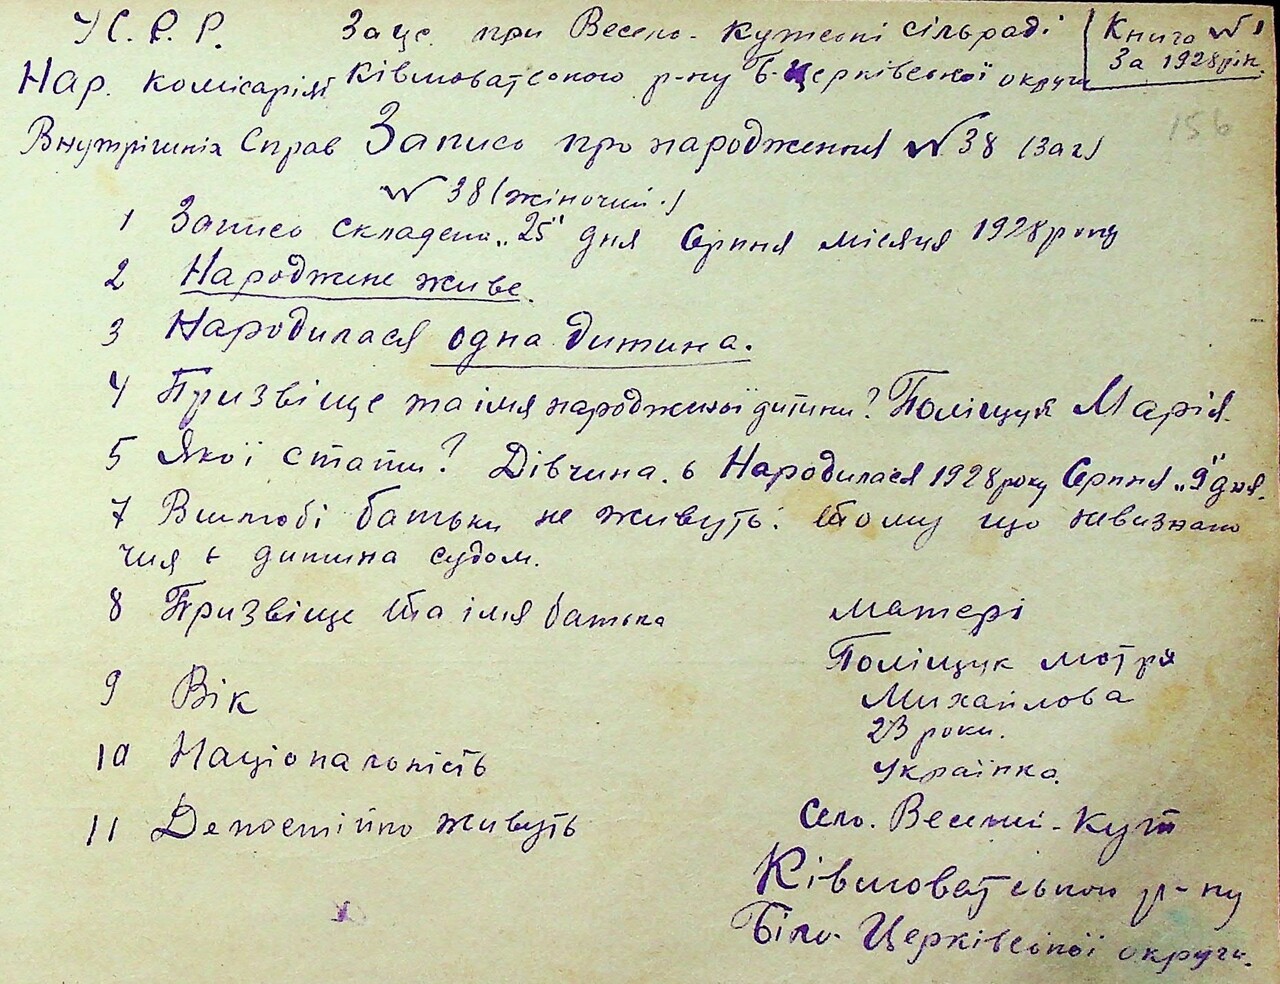 У.С.Р.Р. Загс при Весело-Кутській сільраді Книга № 1
За 1928 рік.
Нар. Комісаріят Ківшоватського р-ну Б-Церківської округи
156
Внутрішніх Справ Запись про народження № 38 (Заг)
№ 38 (жіночий.)
1 Запись складено „25" дня Серпня місяця 1928 року
2 Народжене живе.
3 Народилася одна дитина.
4 Призвіще та імя народженої дитини? Поліщук Марія.
5 Якої стати? Дівчина. 6 Народилася 1928 року Серпня „9" дня.
7 Вшлюбі батьки не живуть. тому що невизнано
чия є дитина судом.
8 Призвіще та імя батька матері
Поліщук Мотря
9 Вік Михайлова
23 роки.
10 Національність Українка
11 Де постійно живуть Село. Веселий-Кут
Ківшоватського р-ну
Біло-Церківської округи.